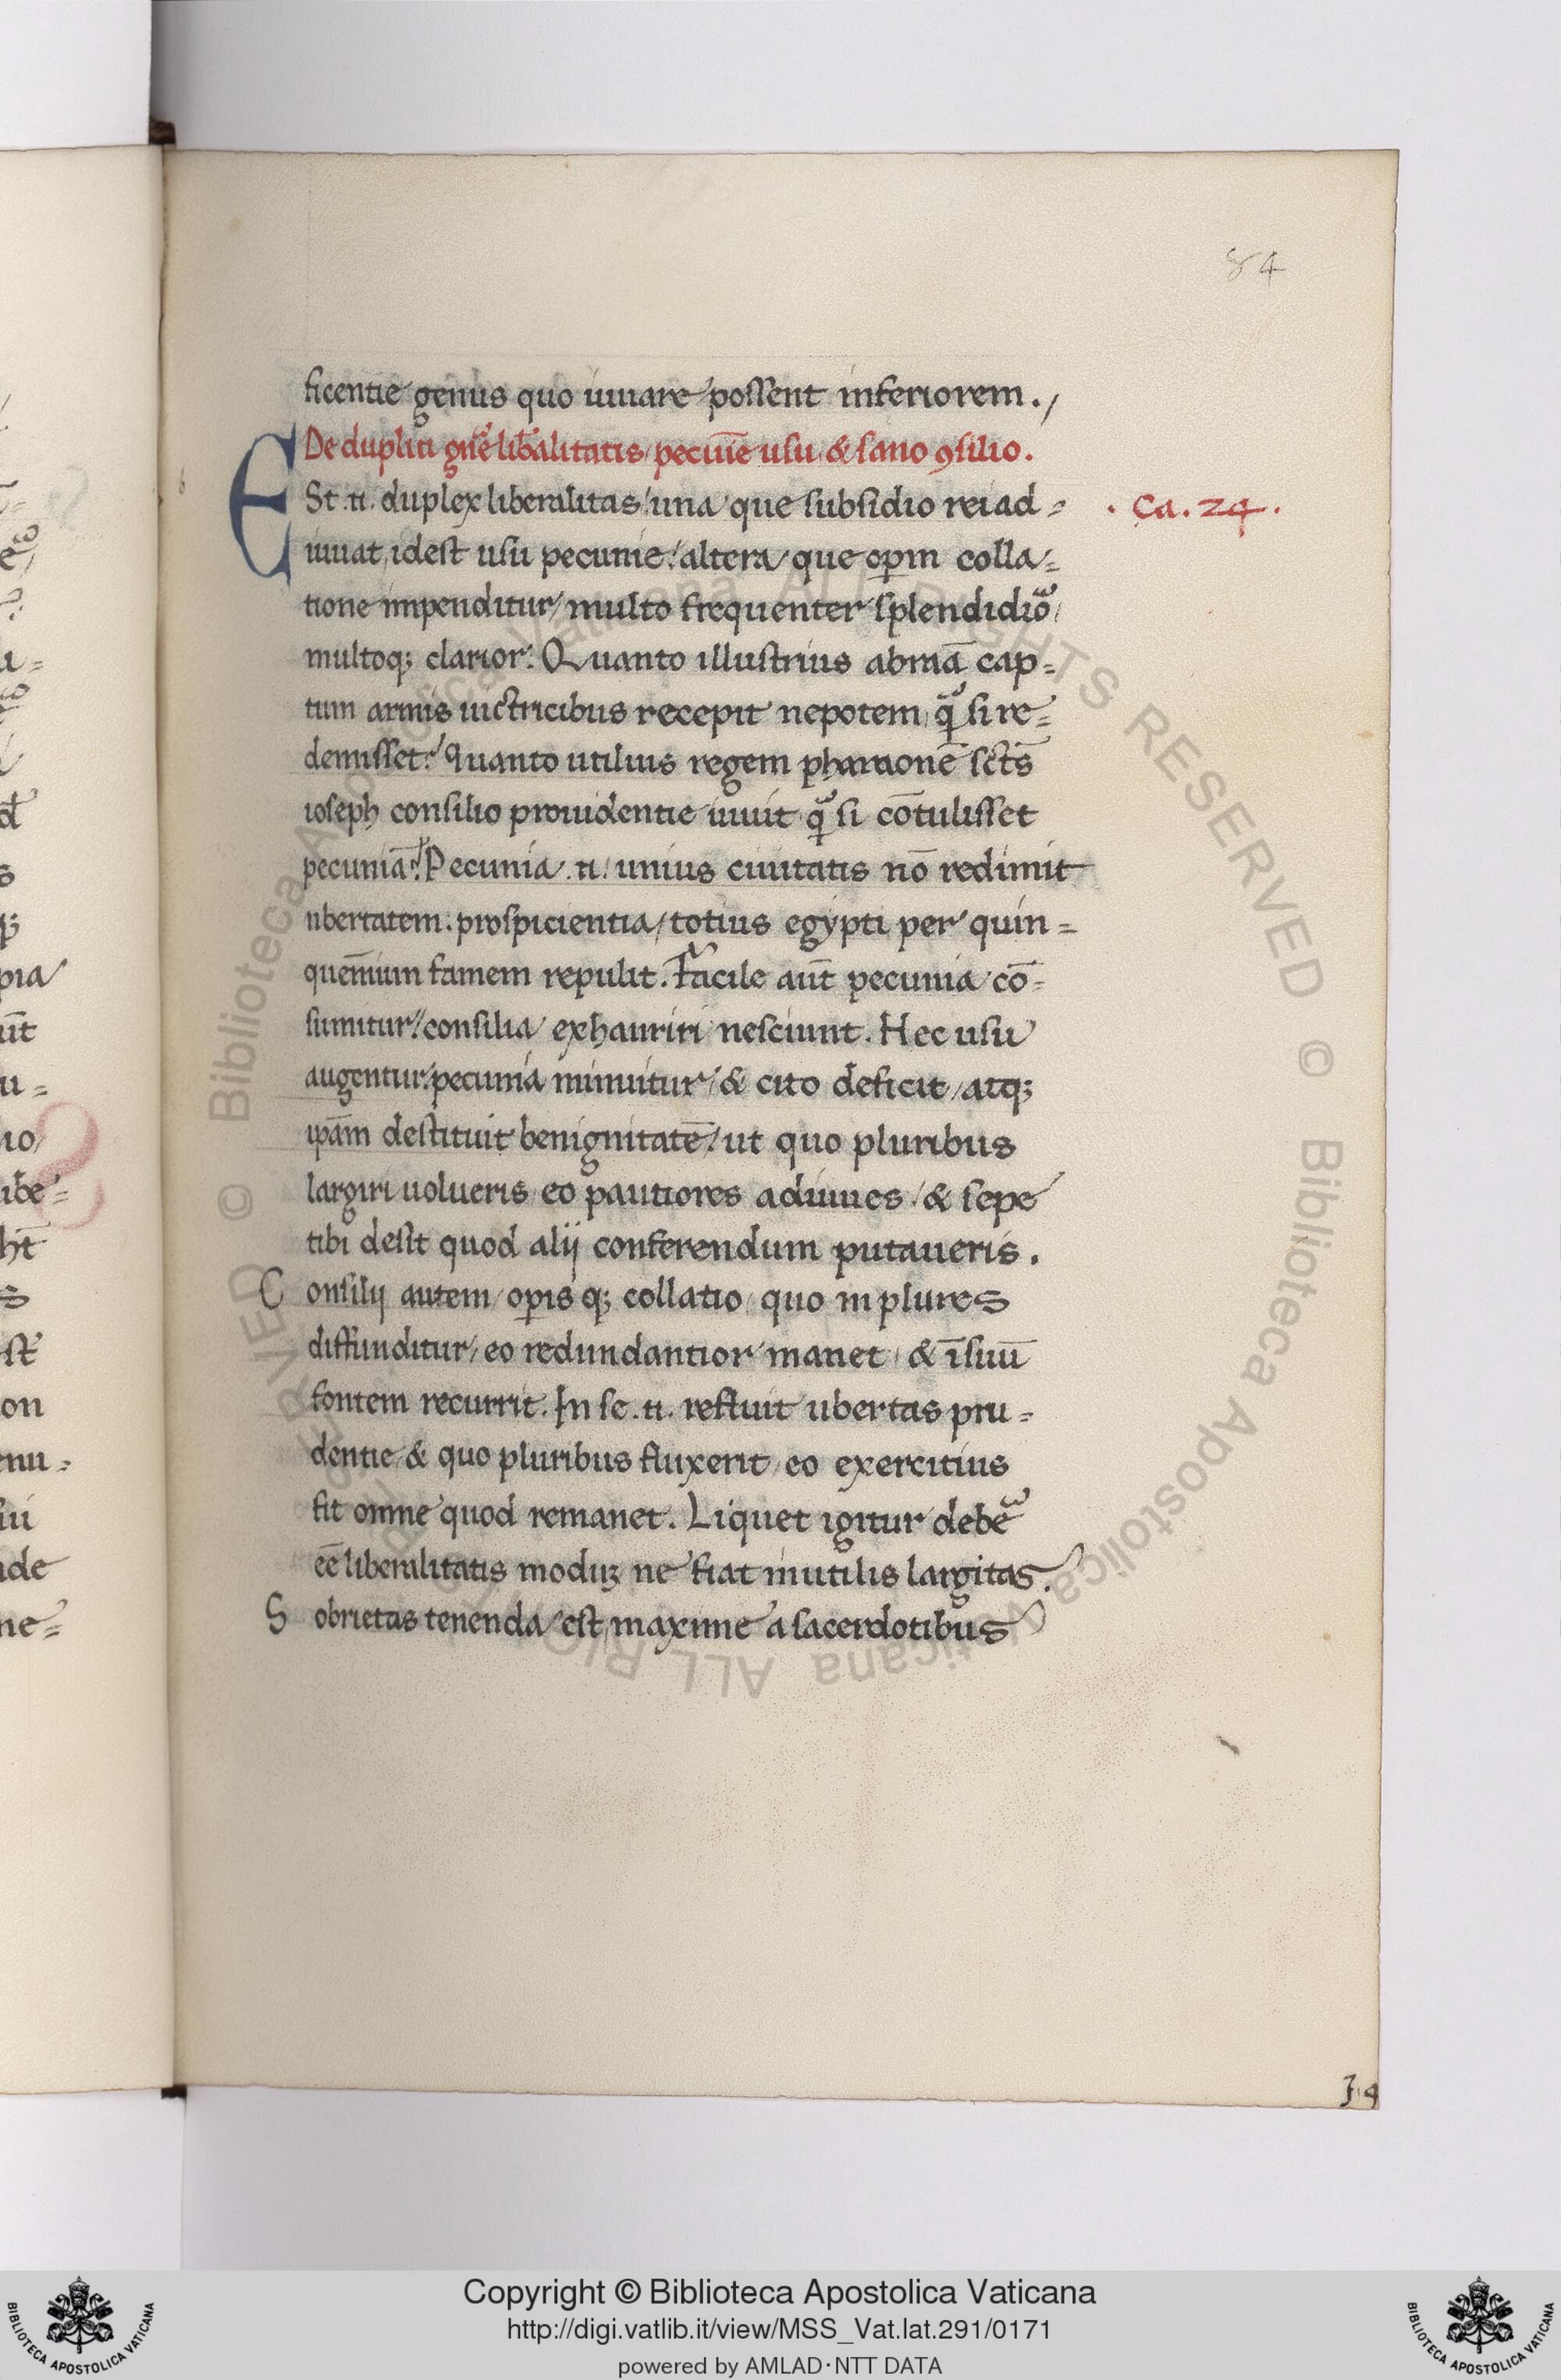 84
ficentie genus quo iuuare possent inferiorem./
De duplici gn̄e lib̄alitatis, pecuīe usu, & sano ꝯsilio.
ESt .n. duplex liberalitas! una que subsidio rei ad=
. Ca. 24.
iuuat, idest usu pecunie! altera que oꝑm colla=
tione impenditur, multo frequenter splendidiõ,
multoq; clarior. Quanto illustrius abraā cap=
tum armis uictricibus recepit nepotem, q̃ si re=
demisset? Quanto utilius regem pharaonē sc̄ts
ioseph consilio prouidentie iuuit q̃ si cōtulisset
pecuniā? Pecunia .n. unius ciuitatis nō redimit
ubertatem: prospicientia, totius egypti per quin=
quēnium famem repulit. Facile aūt pecunia cō=
sumitur! consilia exhauriri nesciunt. Hec usu
augentur! pecunia minuitur, & cito deficit, atq;
ip̄am destituit benignitatē! ut quo pluribus
largiri uolueris, eo pautiores adiuues, & sepe
tibi desit quod alij conferendum putaueris.
Consilij autem, oꝑis q; collatio, quo in plures
diffunditur, eo redundantior manet, & ī suū
fontem recurrit. In se .n. refluit ubertas pru=
dentie, & quo pluribus fluxerit, eo exercitius
fit omne quod remanet. Liquet igitur debẽ
eē liberalitatis moduꝫ ne fiat inutilis largitas.
Sobrietas tenenda est, maxime a sacerdotibus
Copyright © Biblioteca Apostolica Vaticana
http://digi.vatlib.it/view/MSS_Vat.lat.291/0171
powered by AMLAD·NTT DATA